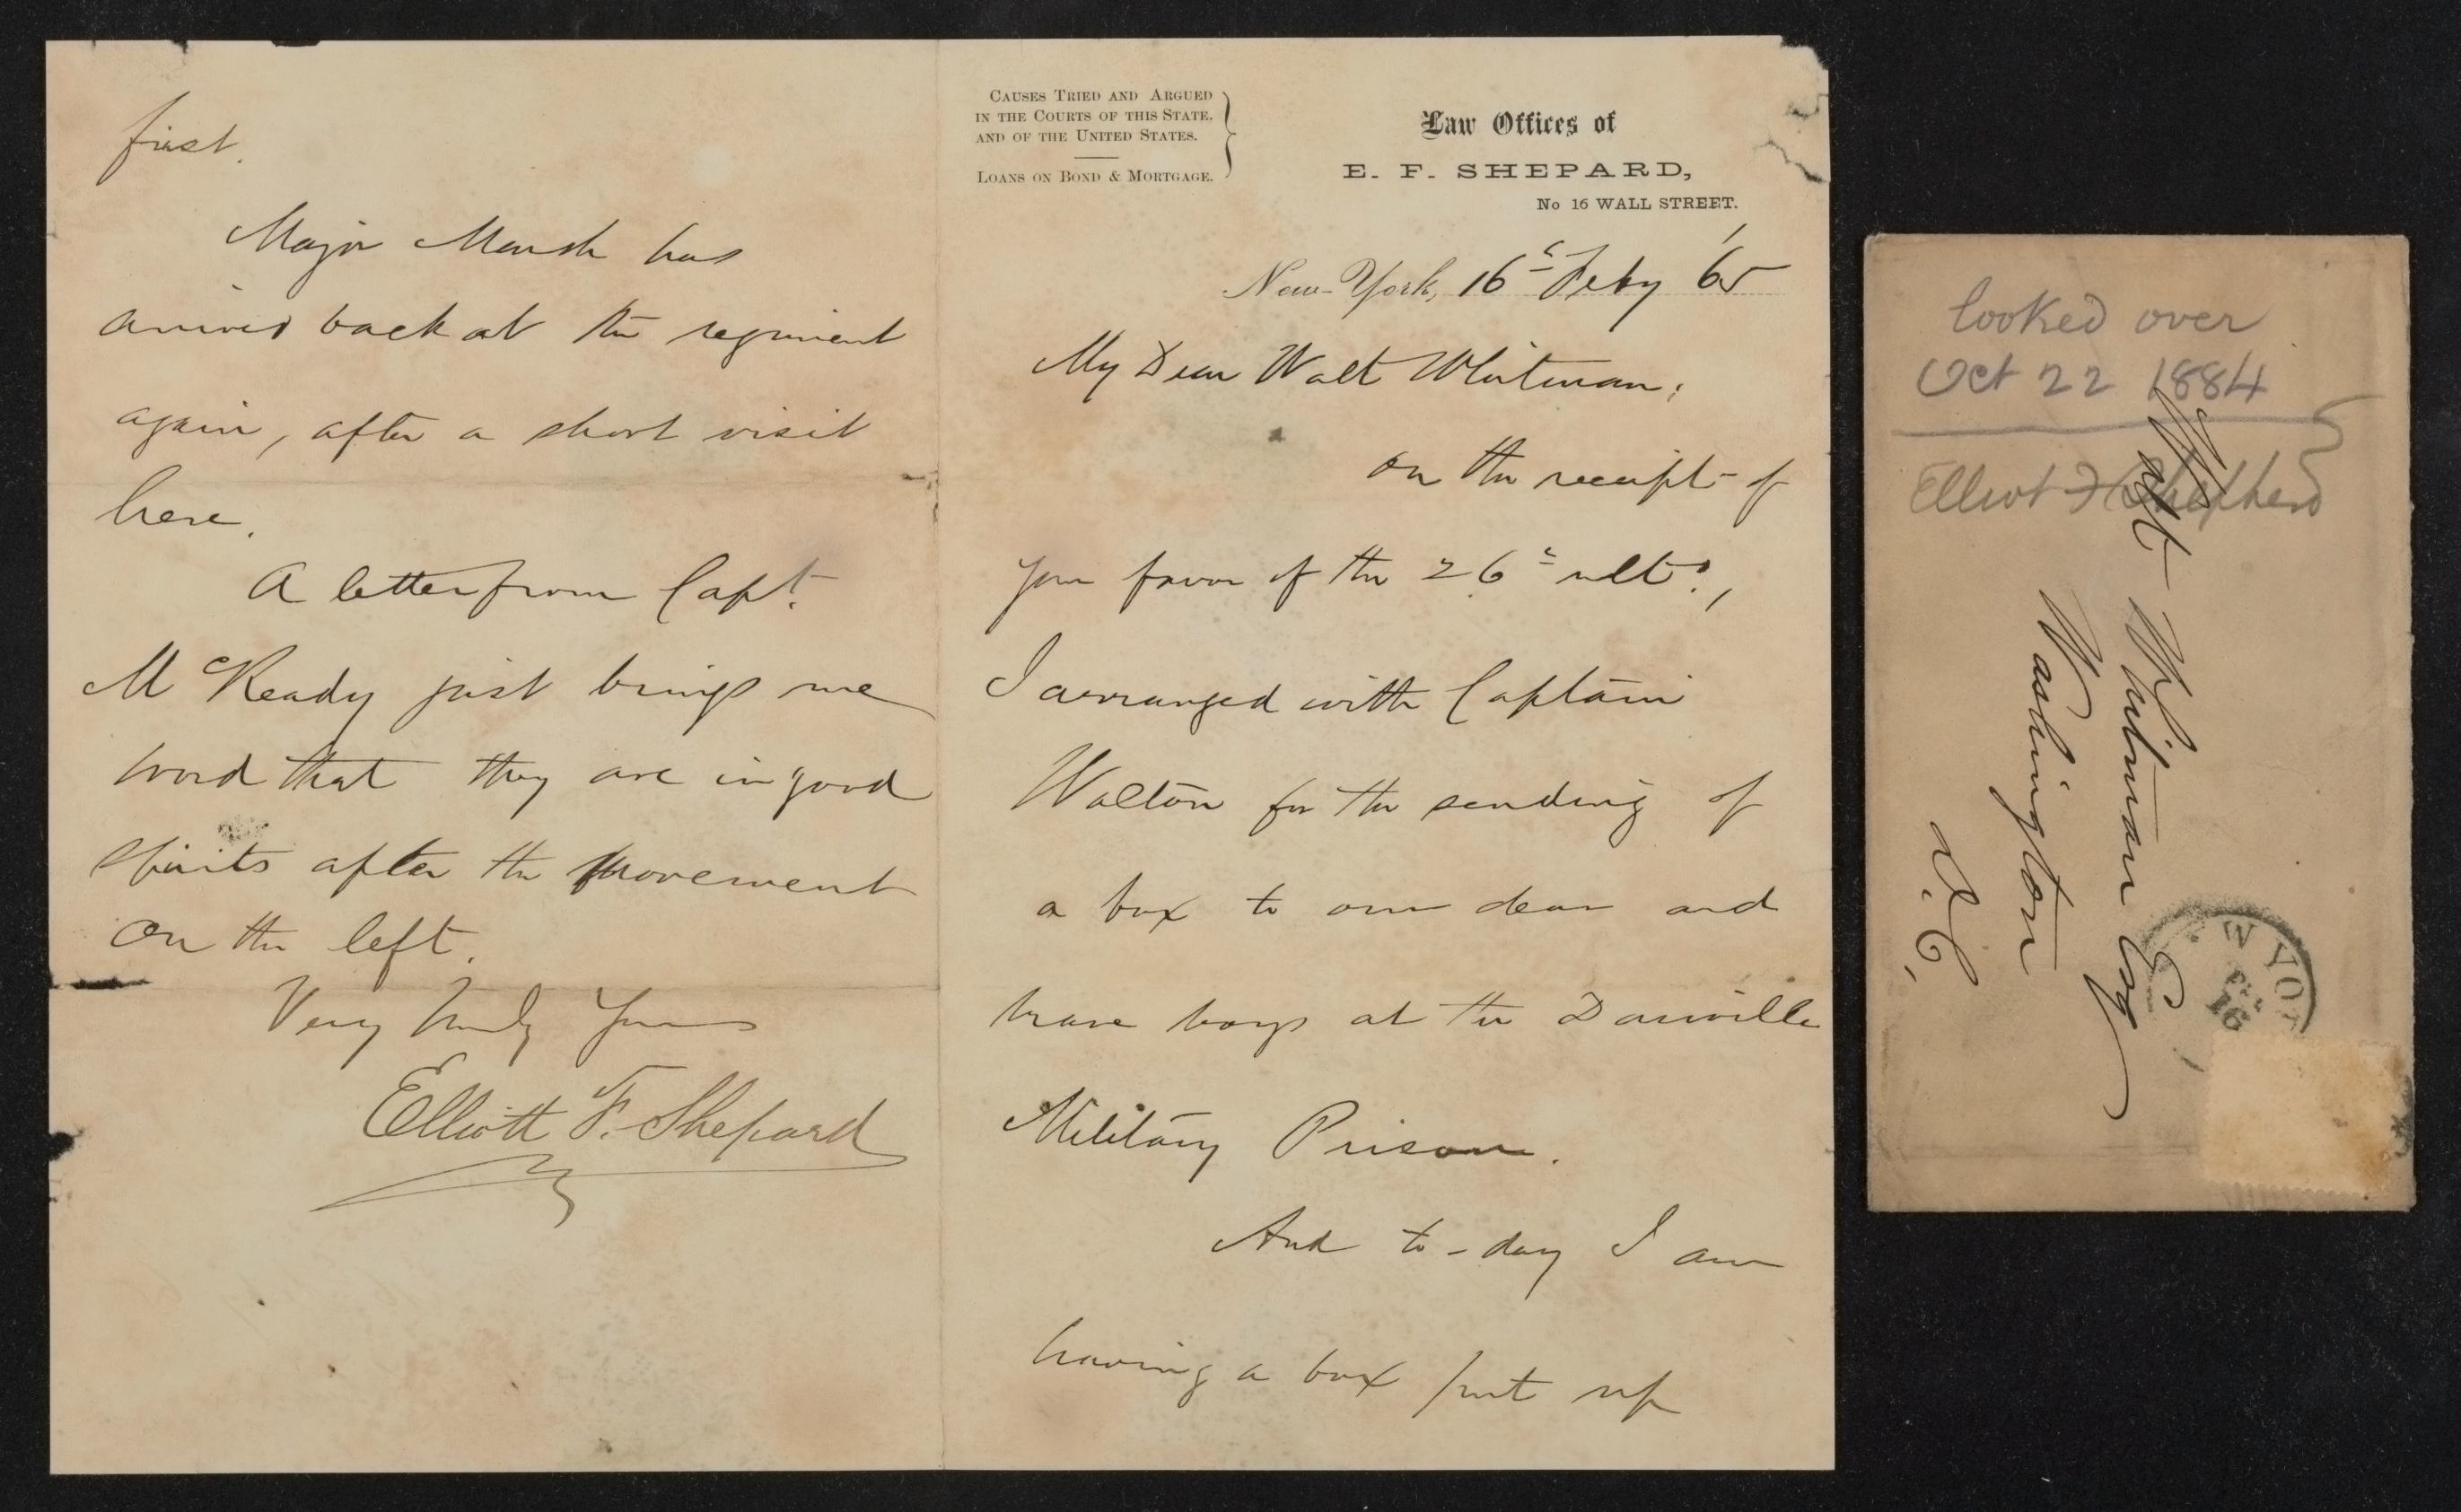 CAUSES TRIED AND ARGUED
IN THE COURTS OF THIS STATE,
AND OF THE UNITED STATES.
LOANS ON BOND & MORTGAGE.
Law Offices of
E. F. SHEPARD,
No 16 WALL STREET.
New-York, 16th Feby '65
My Dear Walt Whitman;
On the receipt of
your favor of the 26th ulto.,
I arranged with Captain
Walton for the sending of
a box to our dear and
brave boys at the Danville
Military Prison.
And to-day I am
having a box put up
first.
Major Marsh has
arrived back at the regiment
again, after a short visit
here.
A letter from Capt.
McReady just brings me
word that they are in good
spirits after the movement
on the left.
Very truly Yours
Elliott F. Shepard
looked over
Oct 22 1884
Elliot F Shepherd
Walt Whitman Esq
Washington
D.C.
W YOR
FEB
16